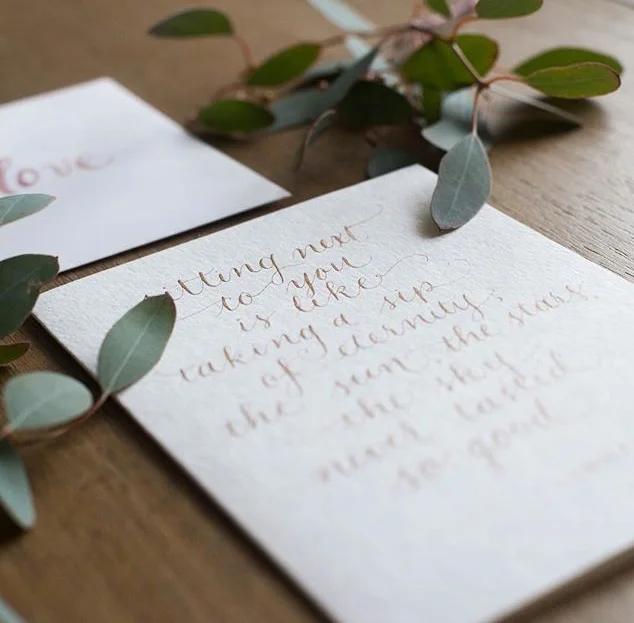 love
sitting next
to you
is like
taking a sip
of eternity;
the sun, the stars,
the sky
never tasted
so good